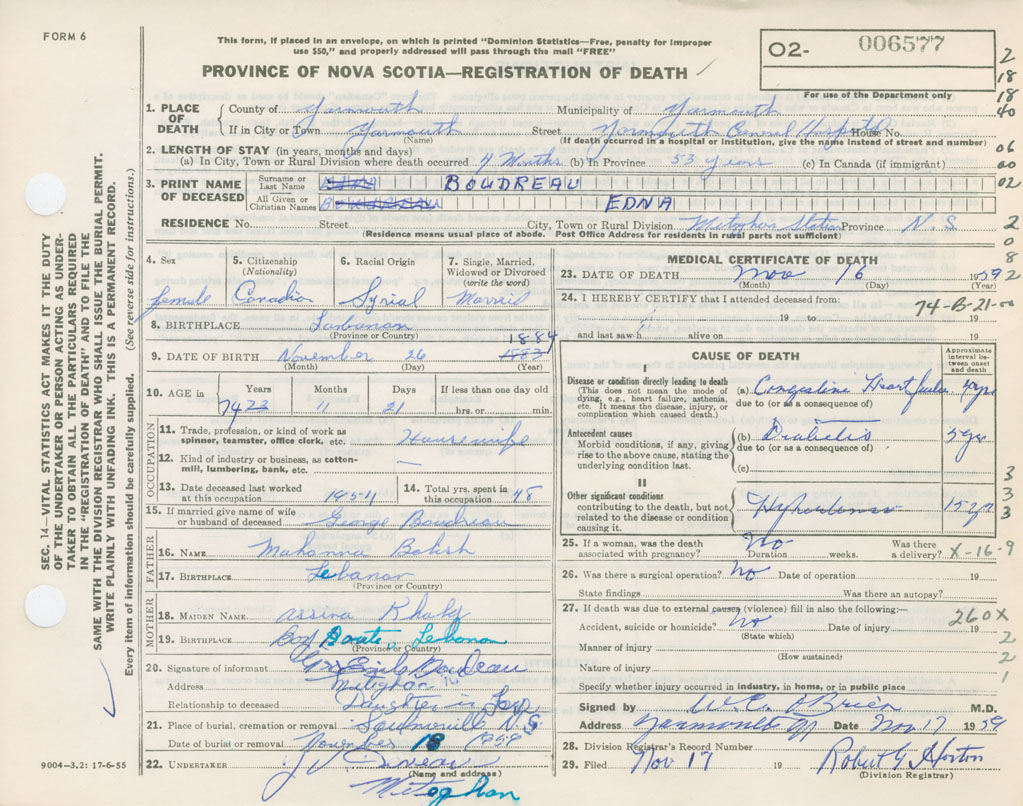 FORM 6
This form, if placed in an envelope, on which is printed "Dominion Statistics—Free, penalty for improper
use $50," and properly addressed will pass through the mail "FREE"
PROVINCE OF NOVA SCOTIA—REGISTRATION OF DEATH
O2- 006577
For use of the Department only
2
18
18
40
06
00
02
2
0
8
2
1. PLACE OF DEATH
County of Yarmouth Municipality of Yarmouth
If in City or Town Yarmouth Street Yarmouth General Hospital House No.
(Name) (If death occurred in a hospital or institution, give the name instead of street and number)
2. LENGTH OF STAY (in years, months and days)
(a) In City, Town or Rural Division where death occurred 9 Months (b) In Province 53 years (c) In Canada (if immigrant)
3. PRINT NAME OF DECEASED
Surname or Last Name BOUDREAU
All Given or Christian Names EDNA
RESIDENCE No. Street City, Town or Rural Division Meteghan Station Province N.S.
(Residence means usual place of abode. Post Office Address for residents in rural parts not sufficient)
4. Sex female
5. Citizenship (Nationality) Canadian
6. Racial Origin Syrial
7. Single, Married, Widowed or Divorced (write the word)
8. BIRTHPLACE
(Province or Country)
9. DATE OF BIRTH November 26 1883 1884
(Month) (Day) (Year)
10. AGE in Years 74 73 Months 11 Days 21 If less than one day old hrs. or min.
OCCUPATION
11. Trade, profession, or kind of work as spinner, teamster, office clerk, etc. Housewife
12. Kind of industry or business, as cotton-mill, lumbering, bank, etc. —
13. Date deceased last worked at this occupation 1954
14. Total yrs. spent in this occupation 48
15. If married give name of wife or husband of deceased George Boudreau
FATHER
16. NAME Mahanna
17. BIRTHPLACE Lebanon
(Province or Country)
MOTHER
18. MAIDEN NAME
19. BIRTHPLACE Lebanon
(Province or Country)
20. Signature of informant
Address Meteghan
Relationship to deceased Daughter in Law
21. Place of burial, cremation or removal Saulnierville N.S
Date of burial or removal November 18 1959
22. UNDERTAKER
(Name and address)
Meteghan
MEDICAL CERTIFICATE OF DEATH
23. DATE OF DEATH Nov 16 1959
(Month) (Day) (Year)
24. I HEREBY CERTIFY that I attended deceased from: 74-B-21-00
19 to 19
and last saw h alive on 19
CAUSE OF DEATH
Approximate interval between onset and death
I
Disease or condition directly leading to death
(This does not mean the mode of dying, e.g., heart failure, asthenia, etc. It means the disease, injury, or complication which caused death.)
(a) Congestive Heart failure
due to (or as a consequence of)
Antecedent causes
Morbid conditions, if any, giving rise to the above cause, stating the underlying condition last.
(b) Diabetes 5 yr
due to (or as a consequence of)
(c)
II
Other significant conditions
contributing to the death, but not related to the disease or condition causing it.
15 yr
3
3
3
25. If a woman, was the death associated with pregnancy? No Duration weeks. Was there a delivery? X-16-9
26. Was there a surgical operation? No Date of operation 19
State findings Was there an autopsy?
27. If death was due to external causes (violence) fill in also the following:—
Accident, suicide or homicide? No Date of injury 19 260X
(State which)
Manner of injury
(How sustained)
Nature of injury
2
2
1
Specify whether injury occurred in industry, in home, or in public place
Signed by W.C. O'Brien M.D.
Address Yarmouth Date Nov 17 1959
28. Division Registrar's Record Number
29. Filed Nov 17 19 Robert G Horton
(Division Registrar)
9004—3.2: 17-6-55
SEC. 14—VITAL STATISTICS ACT MAKES IT THE DUTY
OF THE UNDERTAKER OR PERSON ACTING AS UNDER-
TAKER TO OBTAIN ALL THE PARTICULARS REQUIRED
IN THE "REGISTRATION OF DEATH" AND FILE THE
SAME WITH THE DIVISION REGISTRAR WHO SHALL ISSUE THE BURIAL PERMIT.
WRITE PLAINLY WITH UNFADING INK. THIS IS A PERMANENT RECORD.
Every item of information should be carefully supplied. (See reverse side for instructions.)